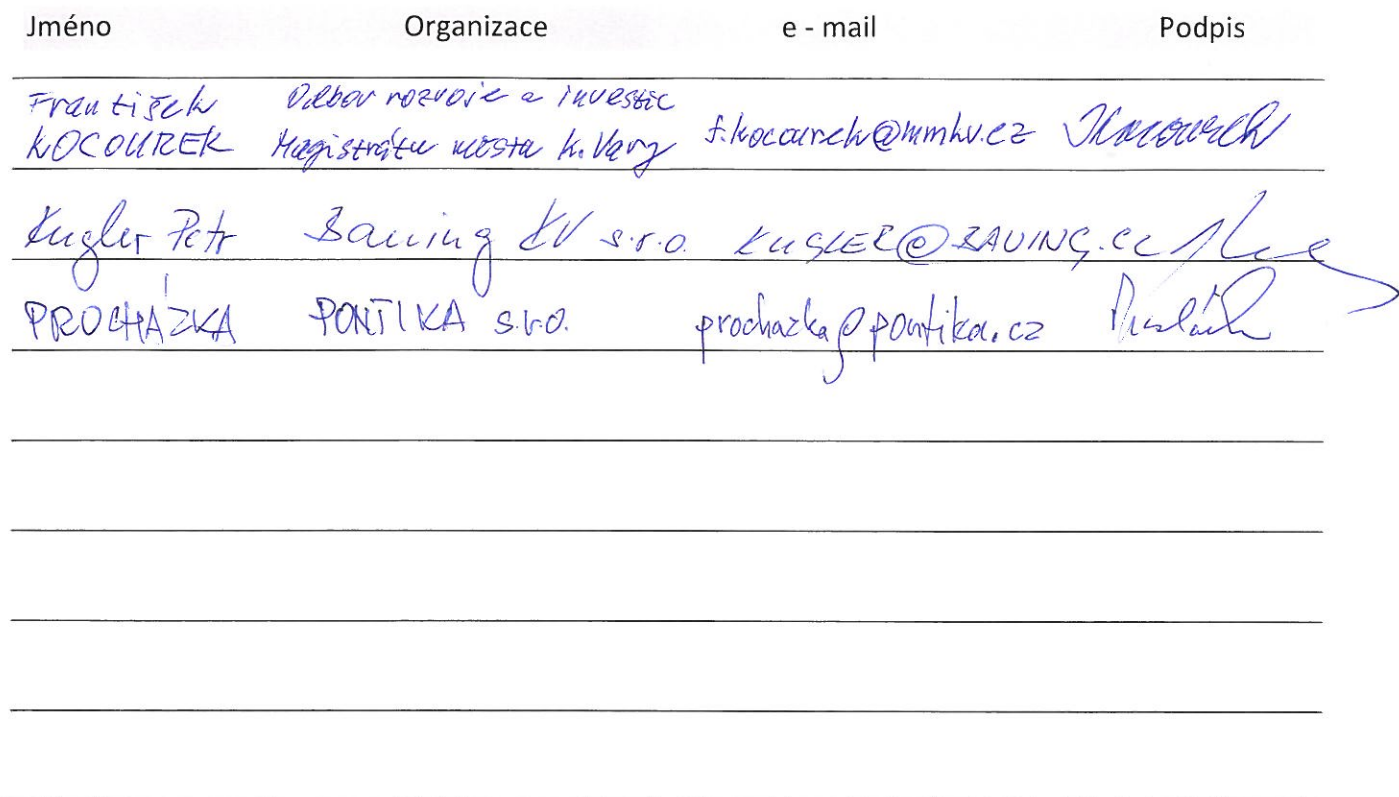 Jméno Organizace e - mail Podpis
František Odbor rozvoje a investic
KOCOUREK Magistrátu města K. Vary f.kocourek@mmkv.cz Kocourek
Kugler Petr Bauing KV s.r.o. KUGLER@BAUING.CZ
PROCHÁZKA PONTIKA s.r.o. prochazka@pontika.cz